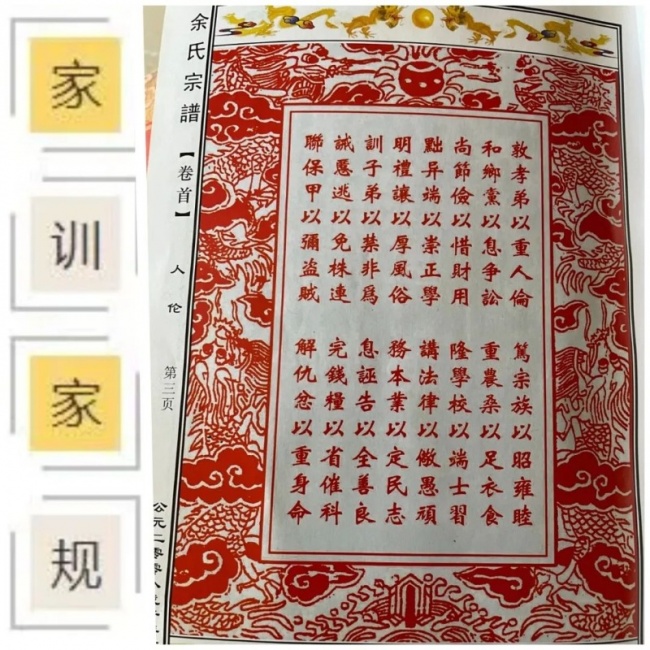 家
训
家
规
余氏宗譜
【卷首】
人伦
第三页
公元二零零八
敦孝弟以重人倫
篤宗族以昭雍睦
和鄉黨以息争訟
重農桑以足衣食
尚節儉以惜財用
隆學校以端士習
黜异端以崇正學
講法律以儆愚頑
明禮讓以厚風俗
務本業以定民志
訓子弟以禁非爲
息誣告以全善良
誡慝逃以免株連
完錢糧以省催科
聯保甲以彌盗賊
解仇忿以重身命